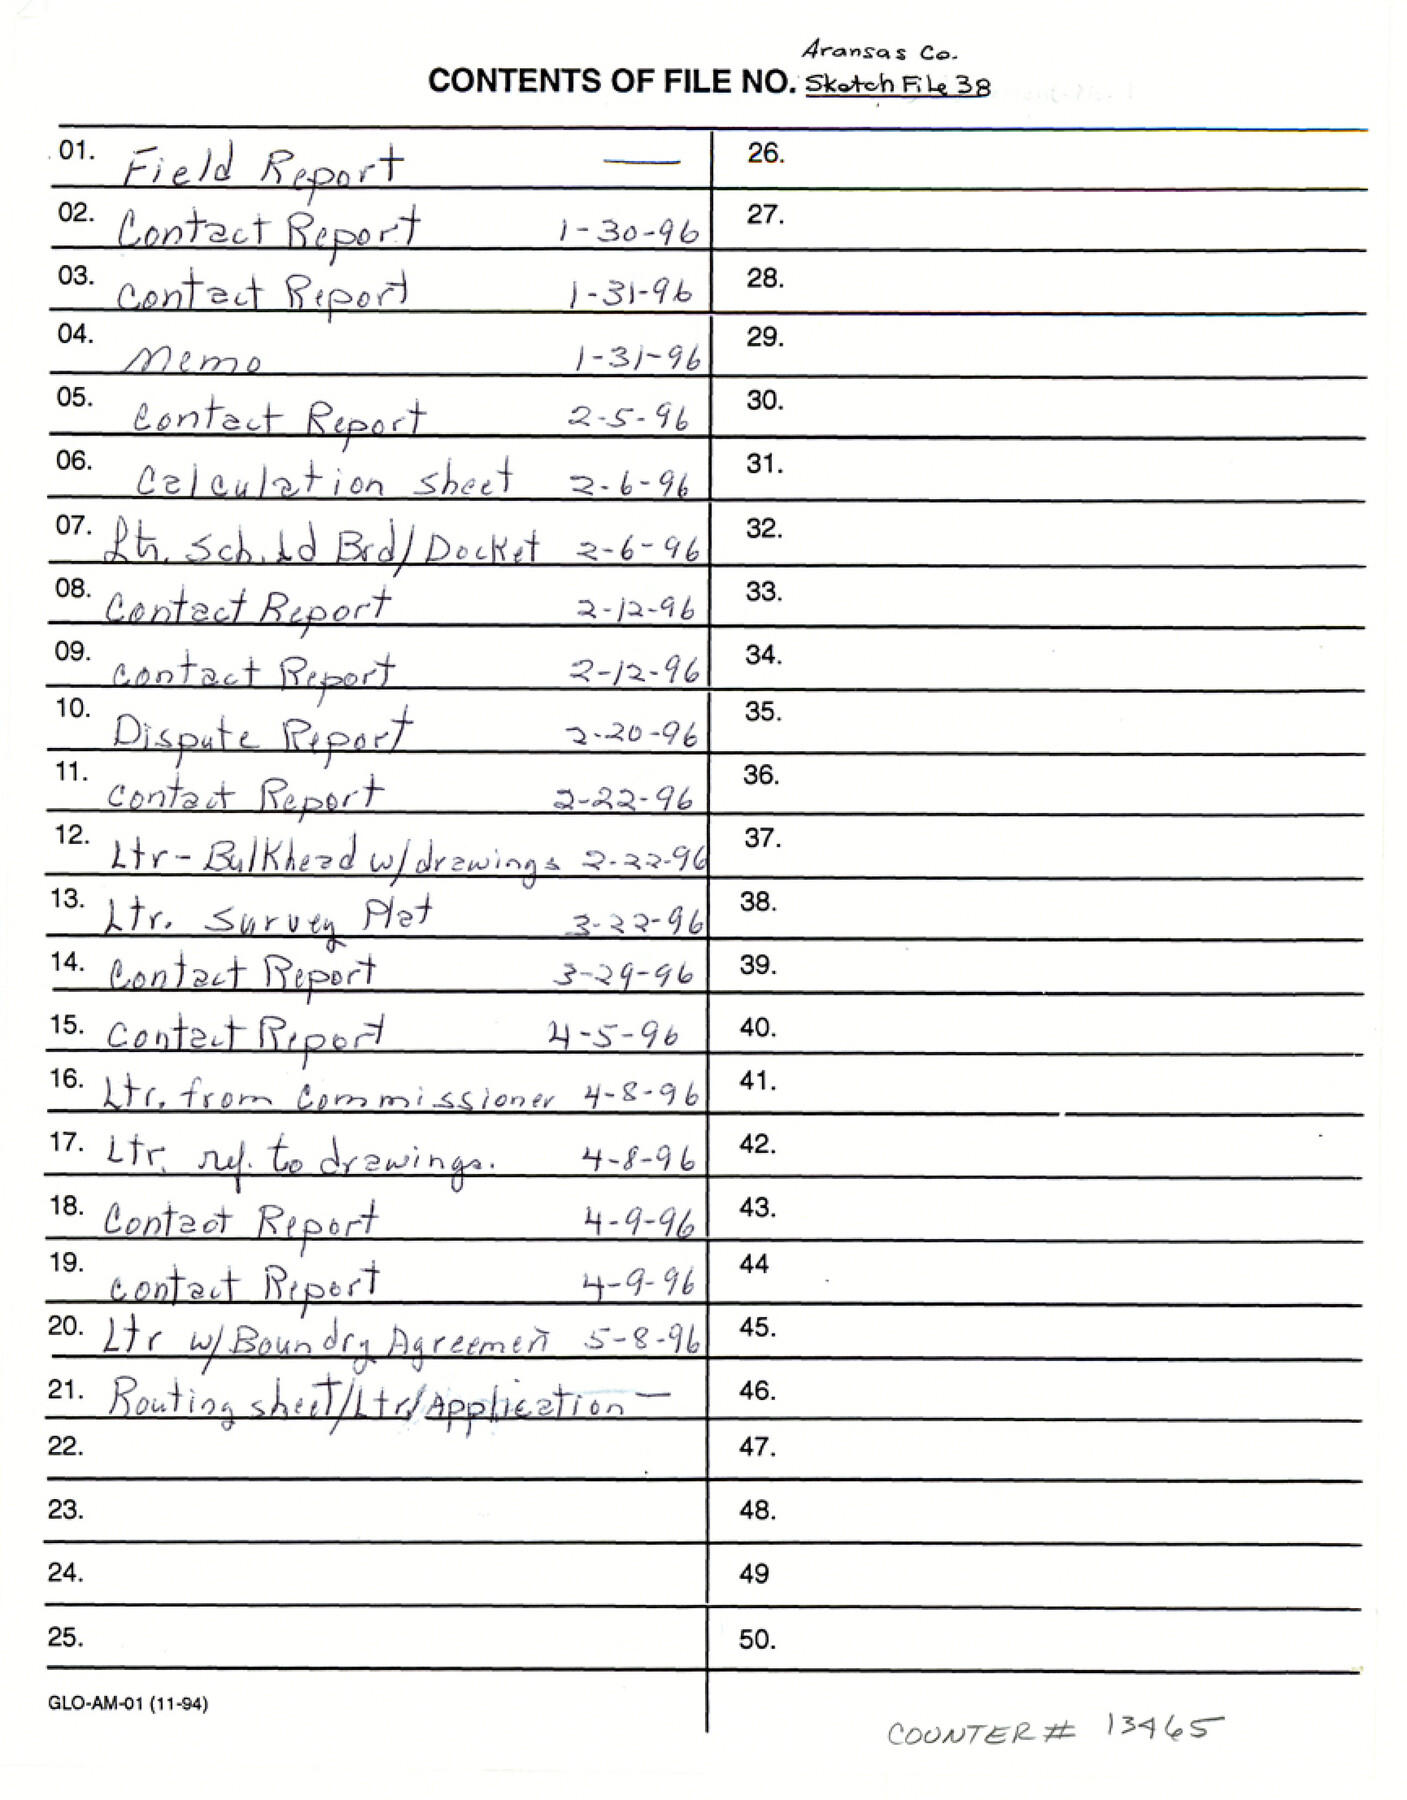 Aransas Co.
CONTENTS OF FILE NO. Sketch File 38
01. Field Report —
02. Contact Report 1-30-96
03. Contact Report 1-31-96
04. Memo 1-31-96
05. Contact Report 2-5-96
06. Calculation sheet 2-6-96
07. Ltr. Sch. Ld Brd/Docket 2-6-96
08. Contact Report 2-12-96
09. Contact Report 2-12-96
10. Dispute Report 2-20-96
11. Contact Report 2-22-96
12. Ltr - Bulkhead w/drawings 2-22-96
13. Ltr. Survey Plat 3-22-96
14. Contact Report 3-29-96
15. Contact Report 4-5-96
16. Ltr. from Commissioner 4-8-96
17. Ltr. ref. to drawings. 4-8-96
18. Contact Report 4-9-96
19. Contact Report 4-9-96
20. Ltr w/Boundry Agreement 5-8-96
21. Routing sheet/Ltr/Application —
22.
23.
24.
25.
26.
27.
28.
29.
30.
31.
32.
33.
34.
35.
36.
37.
38.
39.
40.
41.
42.
43.
44
45.
46.
47.
48.
49
50.
GLO-AM-01 (11-94)
COUNTER # 13465